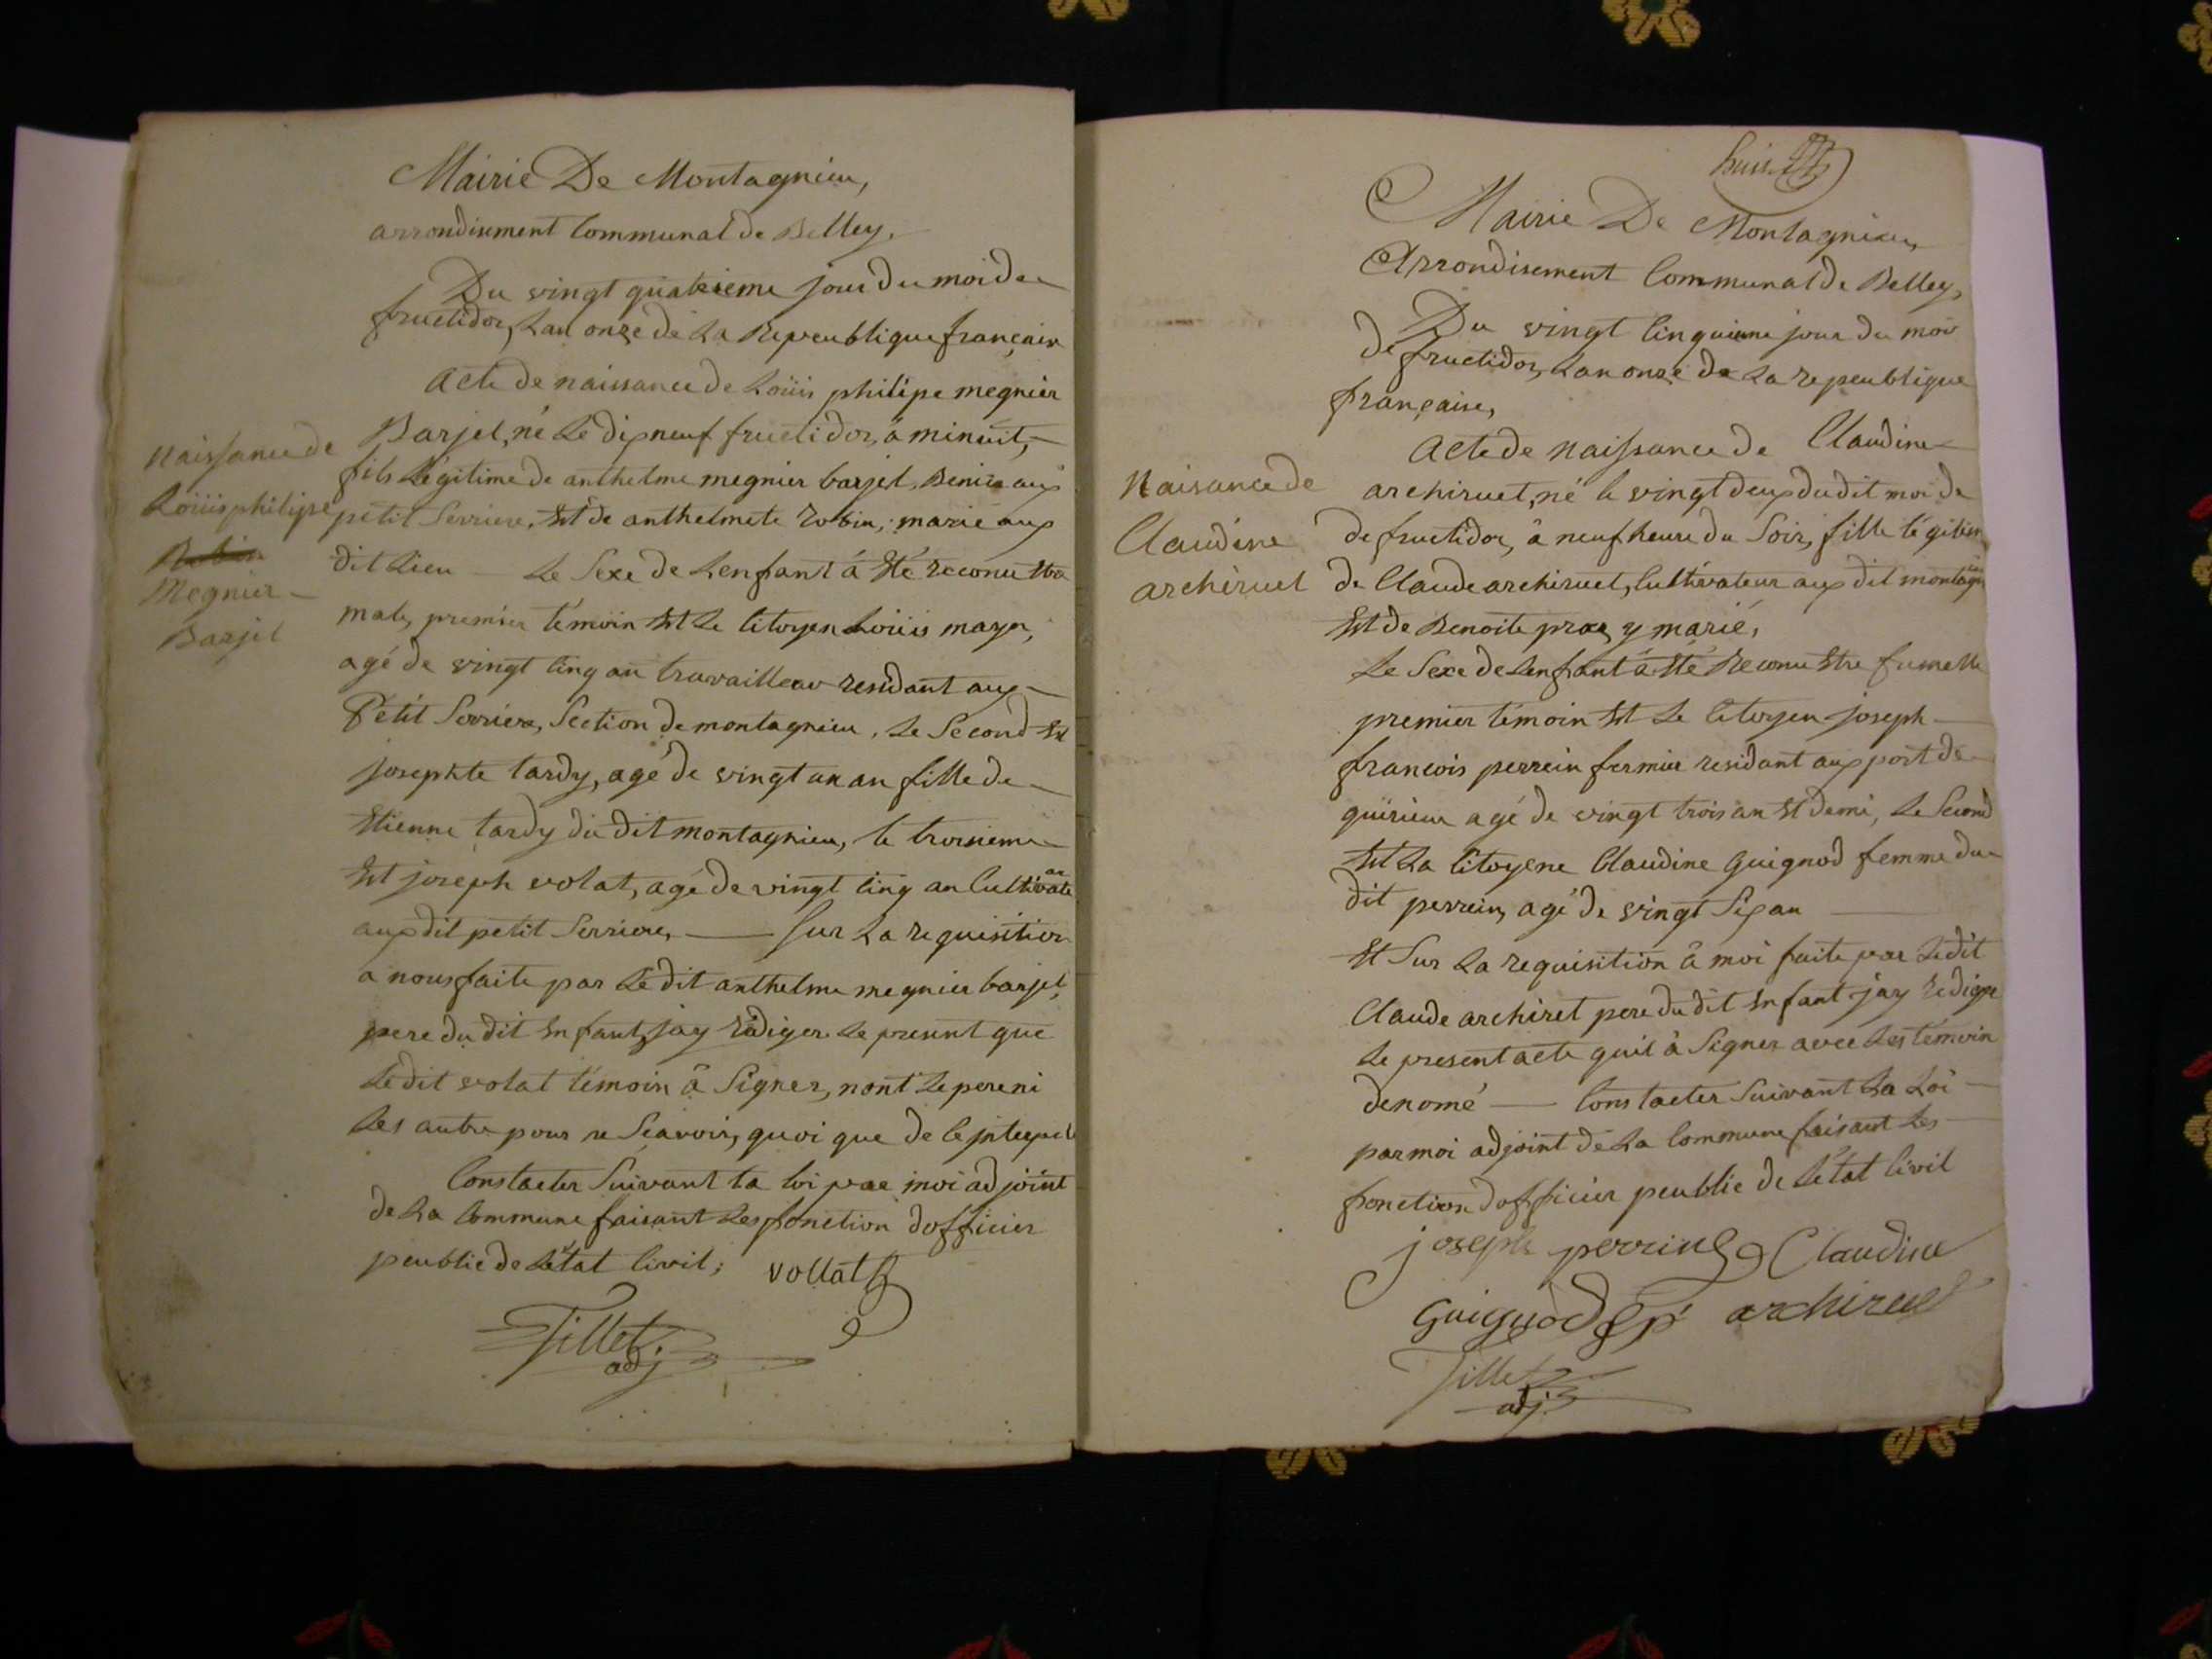 Mairie De Montagnieu,
arrondisement Communal de Belley.
Du vingt quatrieme jour du moi de
fructidor, Lan onze de La Repeublique française
Acte de naissance de Loüis philipe megnier
Barjel, né Le dix neuf fructidor, à minuit,
fils Légitime de anthelme megnier barjel,
petit Serriere, Est de anthelmete robin, marié aux
dit Lieu — Le Sexe de Lenfant à Eté reconu
male, premier témoin Est Le Citoyen Loüis mayer,
agé de vingt cinq an travailleur residant aux
Petit Serriere, Section de montagnieu, Le Second Est
josephte tardy, agé de vingt un an fille de
Etienne tardy du dit montagnieu, le troisieme
Est joseph volat, agé de vingt cinq an Cultivateur
aux dit petit Serriere, — Sur La requisition
a nous faite par Le dit anthelme megnier barjel,
pere du dit Enfant, jay rédiger Le present que
Le dit volat témoin à Signer, nont Le pere ni
Les autre pour ne Sçavoir, quoi que de Ce
Constacter Suivant la loi par moi adjoint
de La Commune faisant Les fonction dofficier
peublic de Létat Civil; vollat
Tillet
adj
Naissance de
Loüis philipe
Robin
Megnier
Barjel
huit
Mairie De Montagnieu,
Arrondisement Communal de Belley,
Du vingt Cinquieme jour du moi
de fructidor, Lan onze de La repeublique
française,
Acte de Naissance de Claudine
archiruet, né le vingt deux du dit moi de
de fructidor, à neuf heure du Soir, fille légitim
de Claude archiruet, Cultivateur aux dit montagnieu
Est de Benoite proz y marié,
Le Sexe de Lenfant à Eté reconu Etre fumelle
premier témoin Est Le Citoyen joseph
francois perrein fermier residant aux port de
quirieu agé de vingt trois an Et demi, Le Second
Est La Citoyene Claudine Guignod femme du
dit perrein, agé de vingt Six an
Et Sur La requisition à moi faite par Le dit
Claude archiret pere du dit Enfant jay rédigé
Le present acte quil à Signer avec Les témoin
denomé — Constacter Suivant La Loi
par moi adjoint de La Commune faisant Les
fonction dofficier peublic de Létat Civil
joseph perrin Claudine
Guignod archiruet
Tillet
adj
Naisance de
Claudine
archiruet